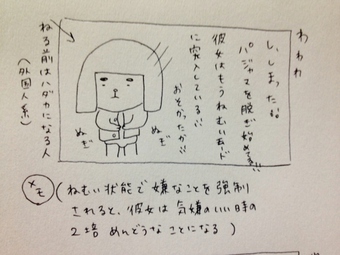 わわわ
し、しまったな。
パジャマを脱ぎ始めてる!!
彼女はもうねむいモード
に突入している!!
おそかったか!!
ぬぎ
ぬぎ
ねる前はハダカになる人
(外国人系)
メモ
(ねむい状態で嫌なことを強制
されると、彼女は気嫌のいい時の
2培めんどうなことになる)